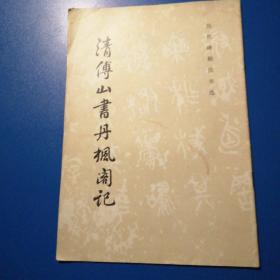 历代碑帖法书选
清傅山書丹楓阁記